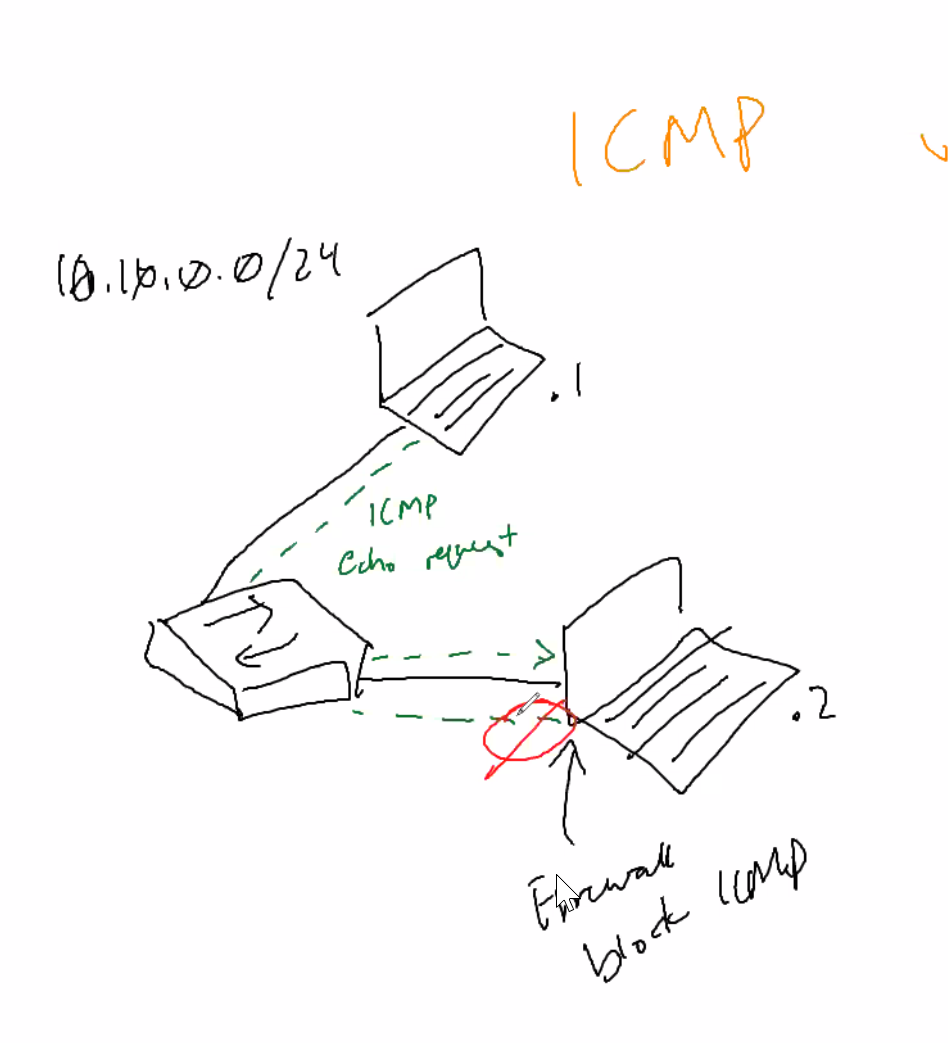 ICMP
10.10.0.0/24
.1
ICMP
Echo request
.2
Firewall
block ICMP